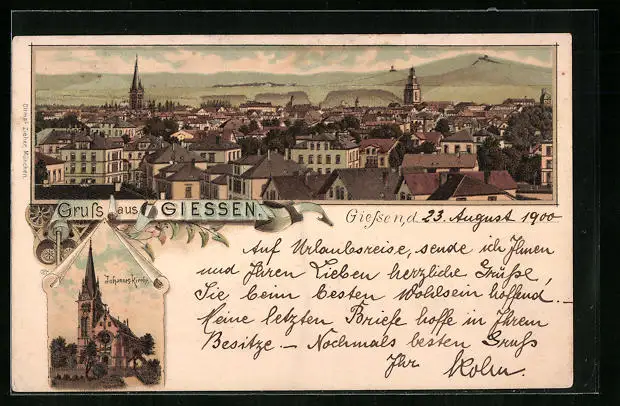 Dirmpl Ziehler, München.
Gruß aus GIESSEN.
Gießen, d. 23. August 1900
Johanneskirche.
Auf Urlaubsreise, sende ich Ihnen
und Ihren Lieben herzliche Grüße,
Sie beim besten Wohlsein hoffend. –
Meine letzten Briefe hoffe in Ihrem
Besitze. – Nochmals besten Gruß
Ihr Kolm.